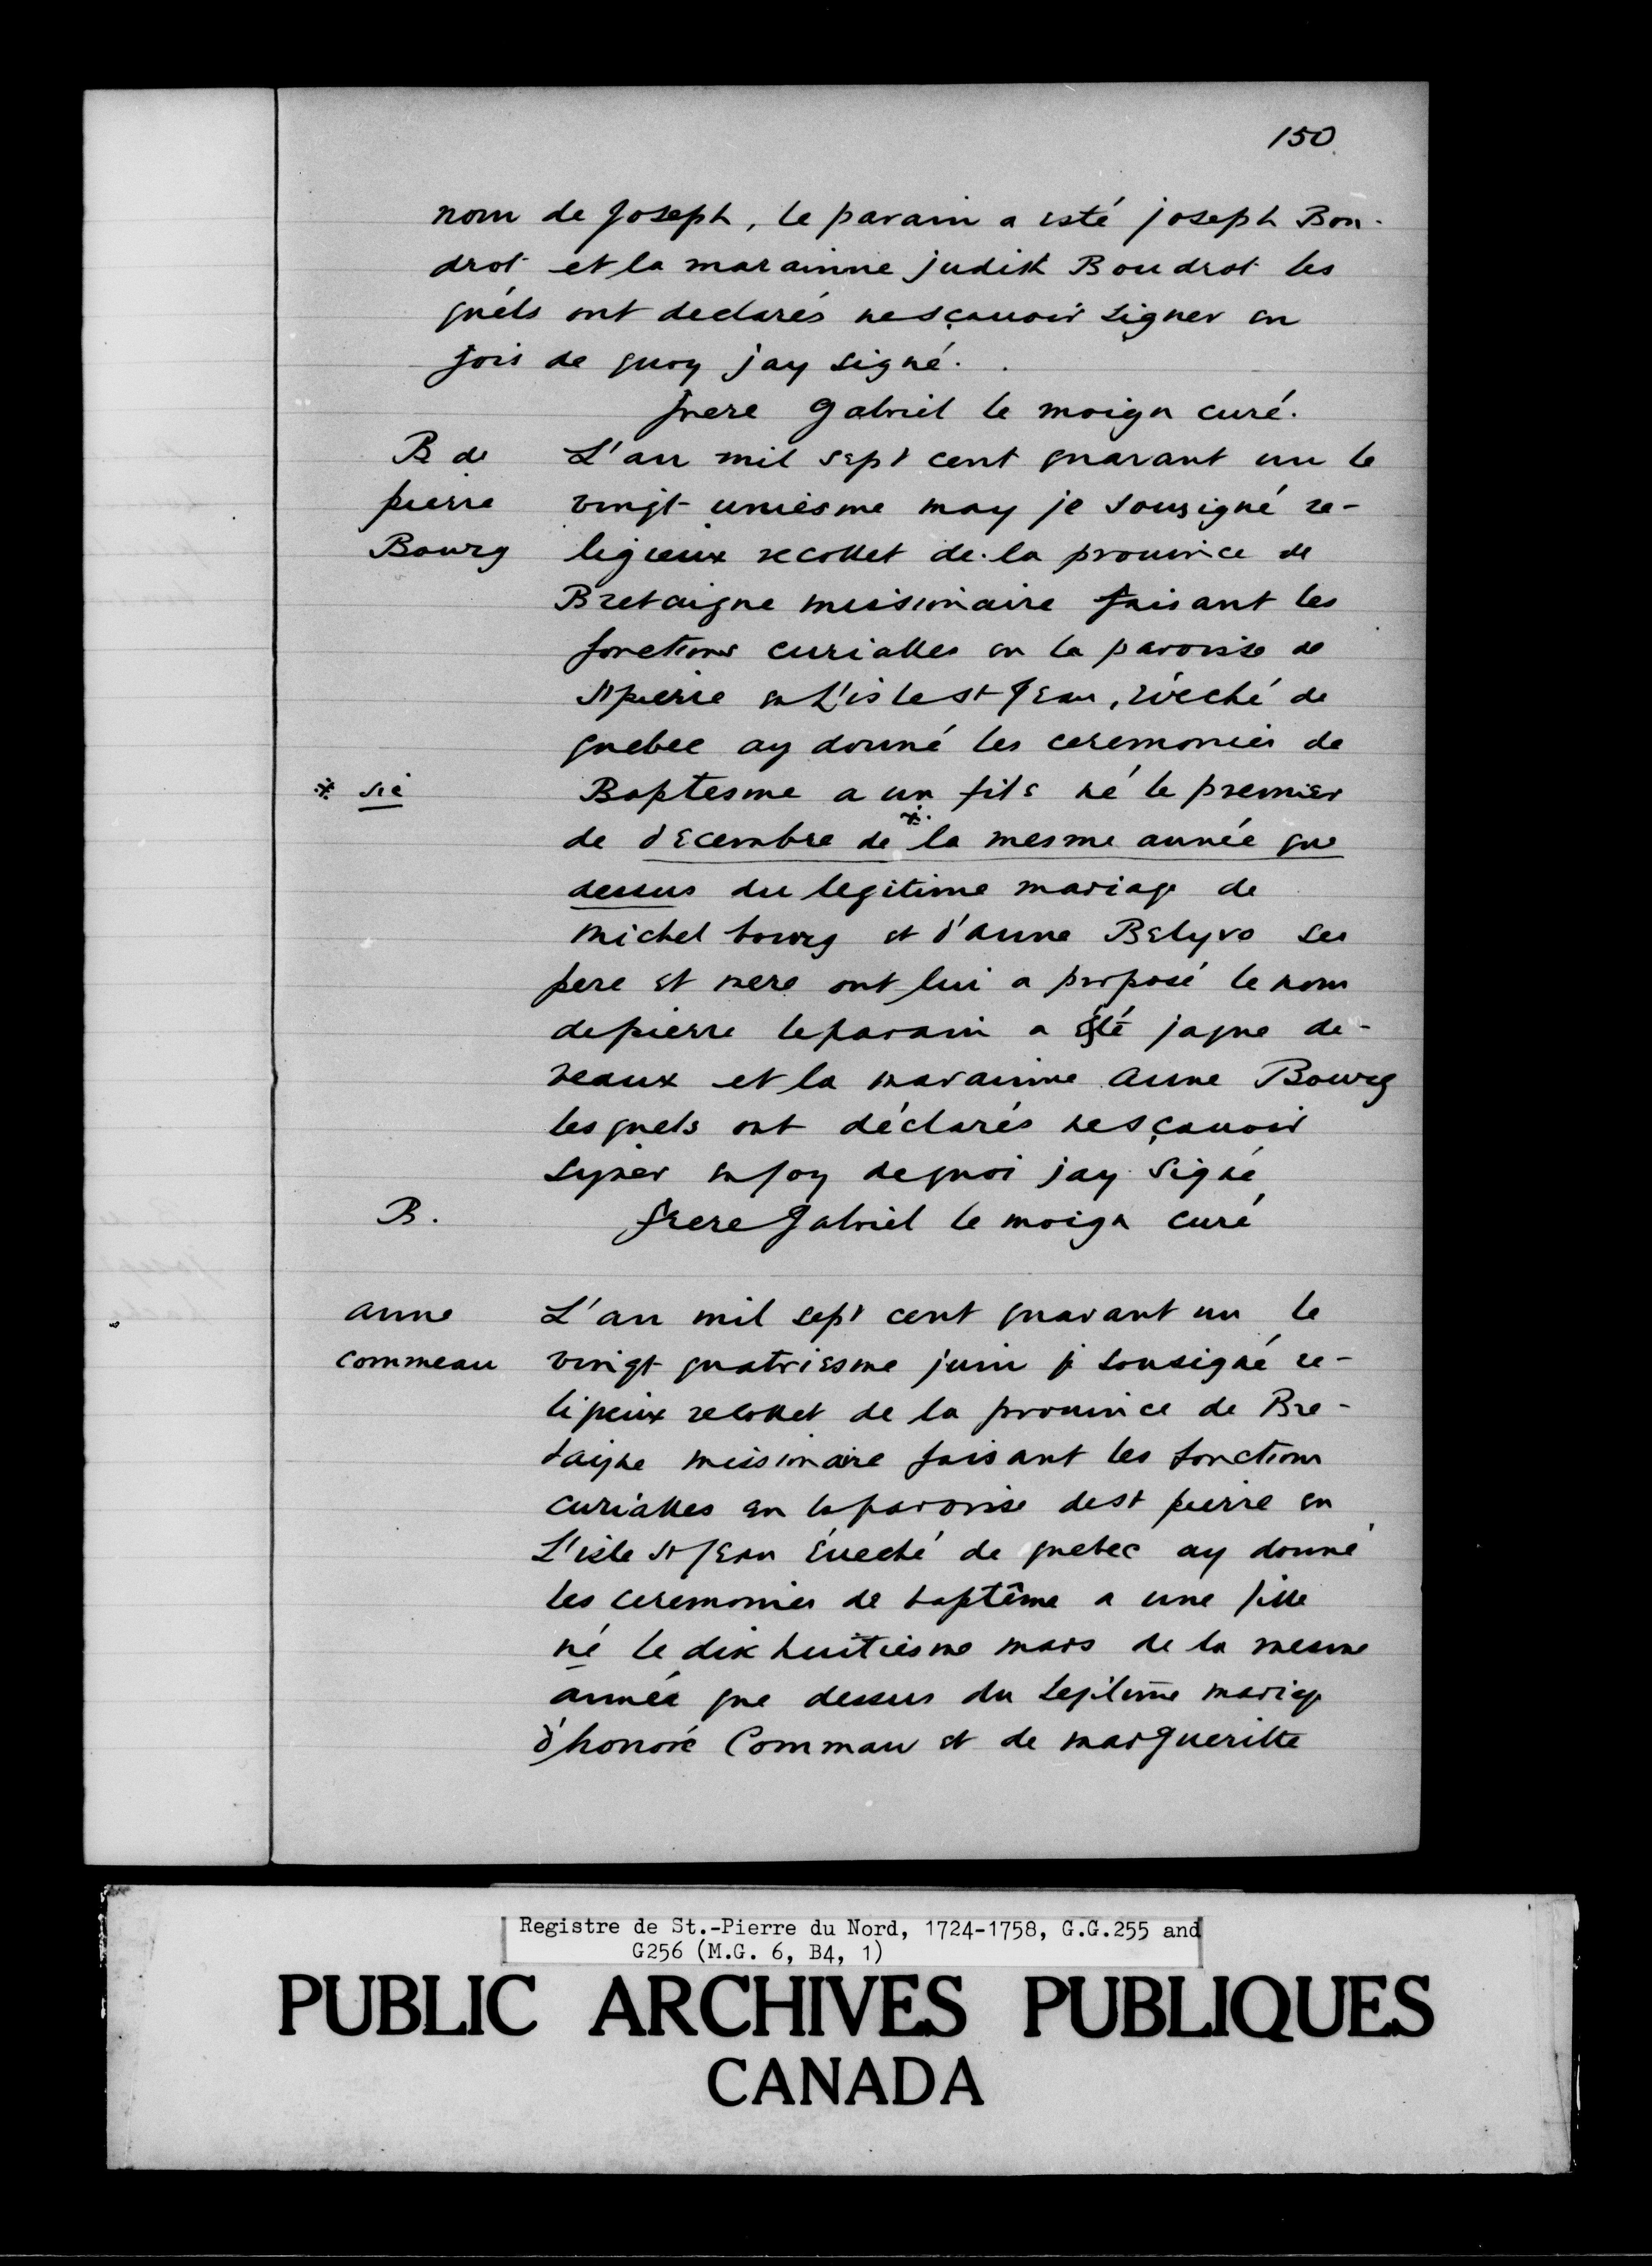 150
nom de Joseph, le parain a esté joseph Bou-
drot et la marainne judith Boudrot les
quéls ont declarés nesçauoir signer en
fois de quoy jay signé.
frere Gabriel le moign curé.
B de
pierre
Bourg
L'an mil sept cent quarant un le
vingt uniesme may je sousigné re-
ligieux recollet de la prouince de
Bretaigne missionaire faisant les
fonctions curialles en la paroisse de
st pierre en L'isle st Jean, évêché de
quebec ay donné les ceremonies de
* sic
Baptesme a un fils né le premier
de decembre de * la mesme année que
dessus du legitime mariage de
Michel bourg et d'anne Belyvo ses
pere et mere ont lui a proposé le nom
de pierre le parain a été jaque de-
veaux et la marainne anne Bourg
lesquels ont déclarés nesçauoir
signer en foy de quoi jay signé
B.
frere Gabriel le moign curé
anne
commeau
L'an mil sept cent quarant un le
vingt quatriesme juin je sousigné re-
ligieux recollet de la prouince de Bre-
taigne missionaire faisant les fonctions
curialles en la paroisse de st pierre en
L'isle st Jean éueché de quebec ay donné
les ceremonies de baptême a une fille
né le dix huitiesme mars de la mesme
année que dessus du legitime mariage
d'honoré Commau et de margueritte
Registre de St.-Pierre du Nord, 1724-1758, G.G.255 and
G256 (M.G. 6, B4, 1)
PUBLIC ARCHIVES PUBLIQUES
CANADA